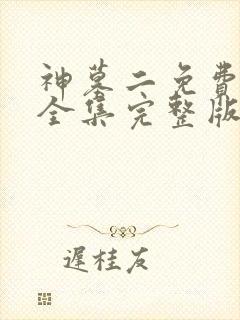 神墓二免费
全集完整版
遲桂友